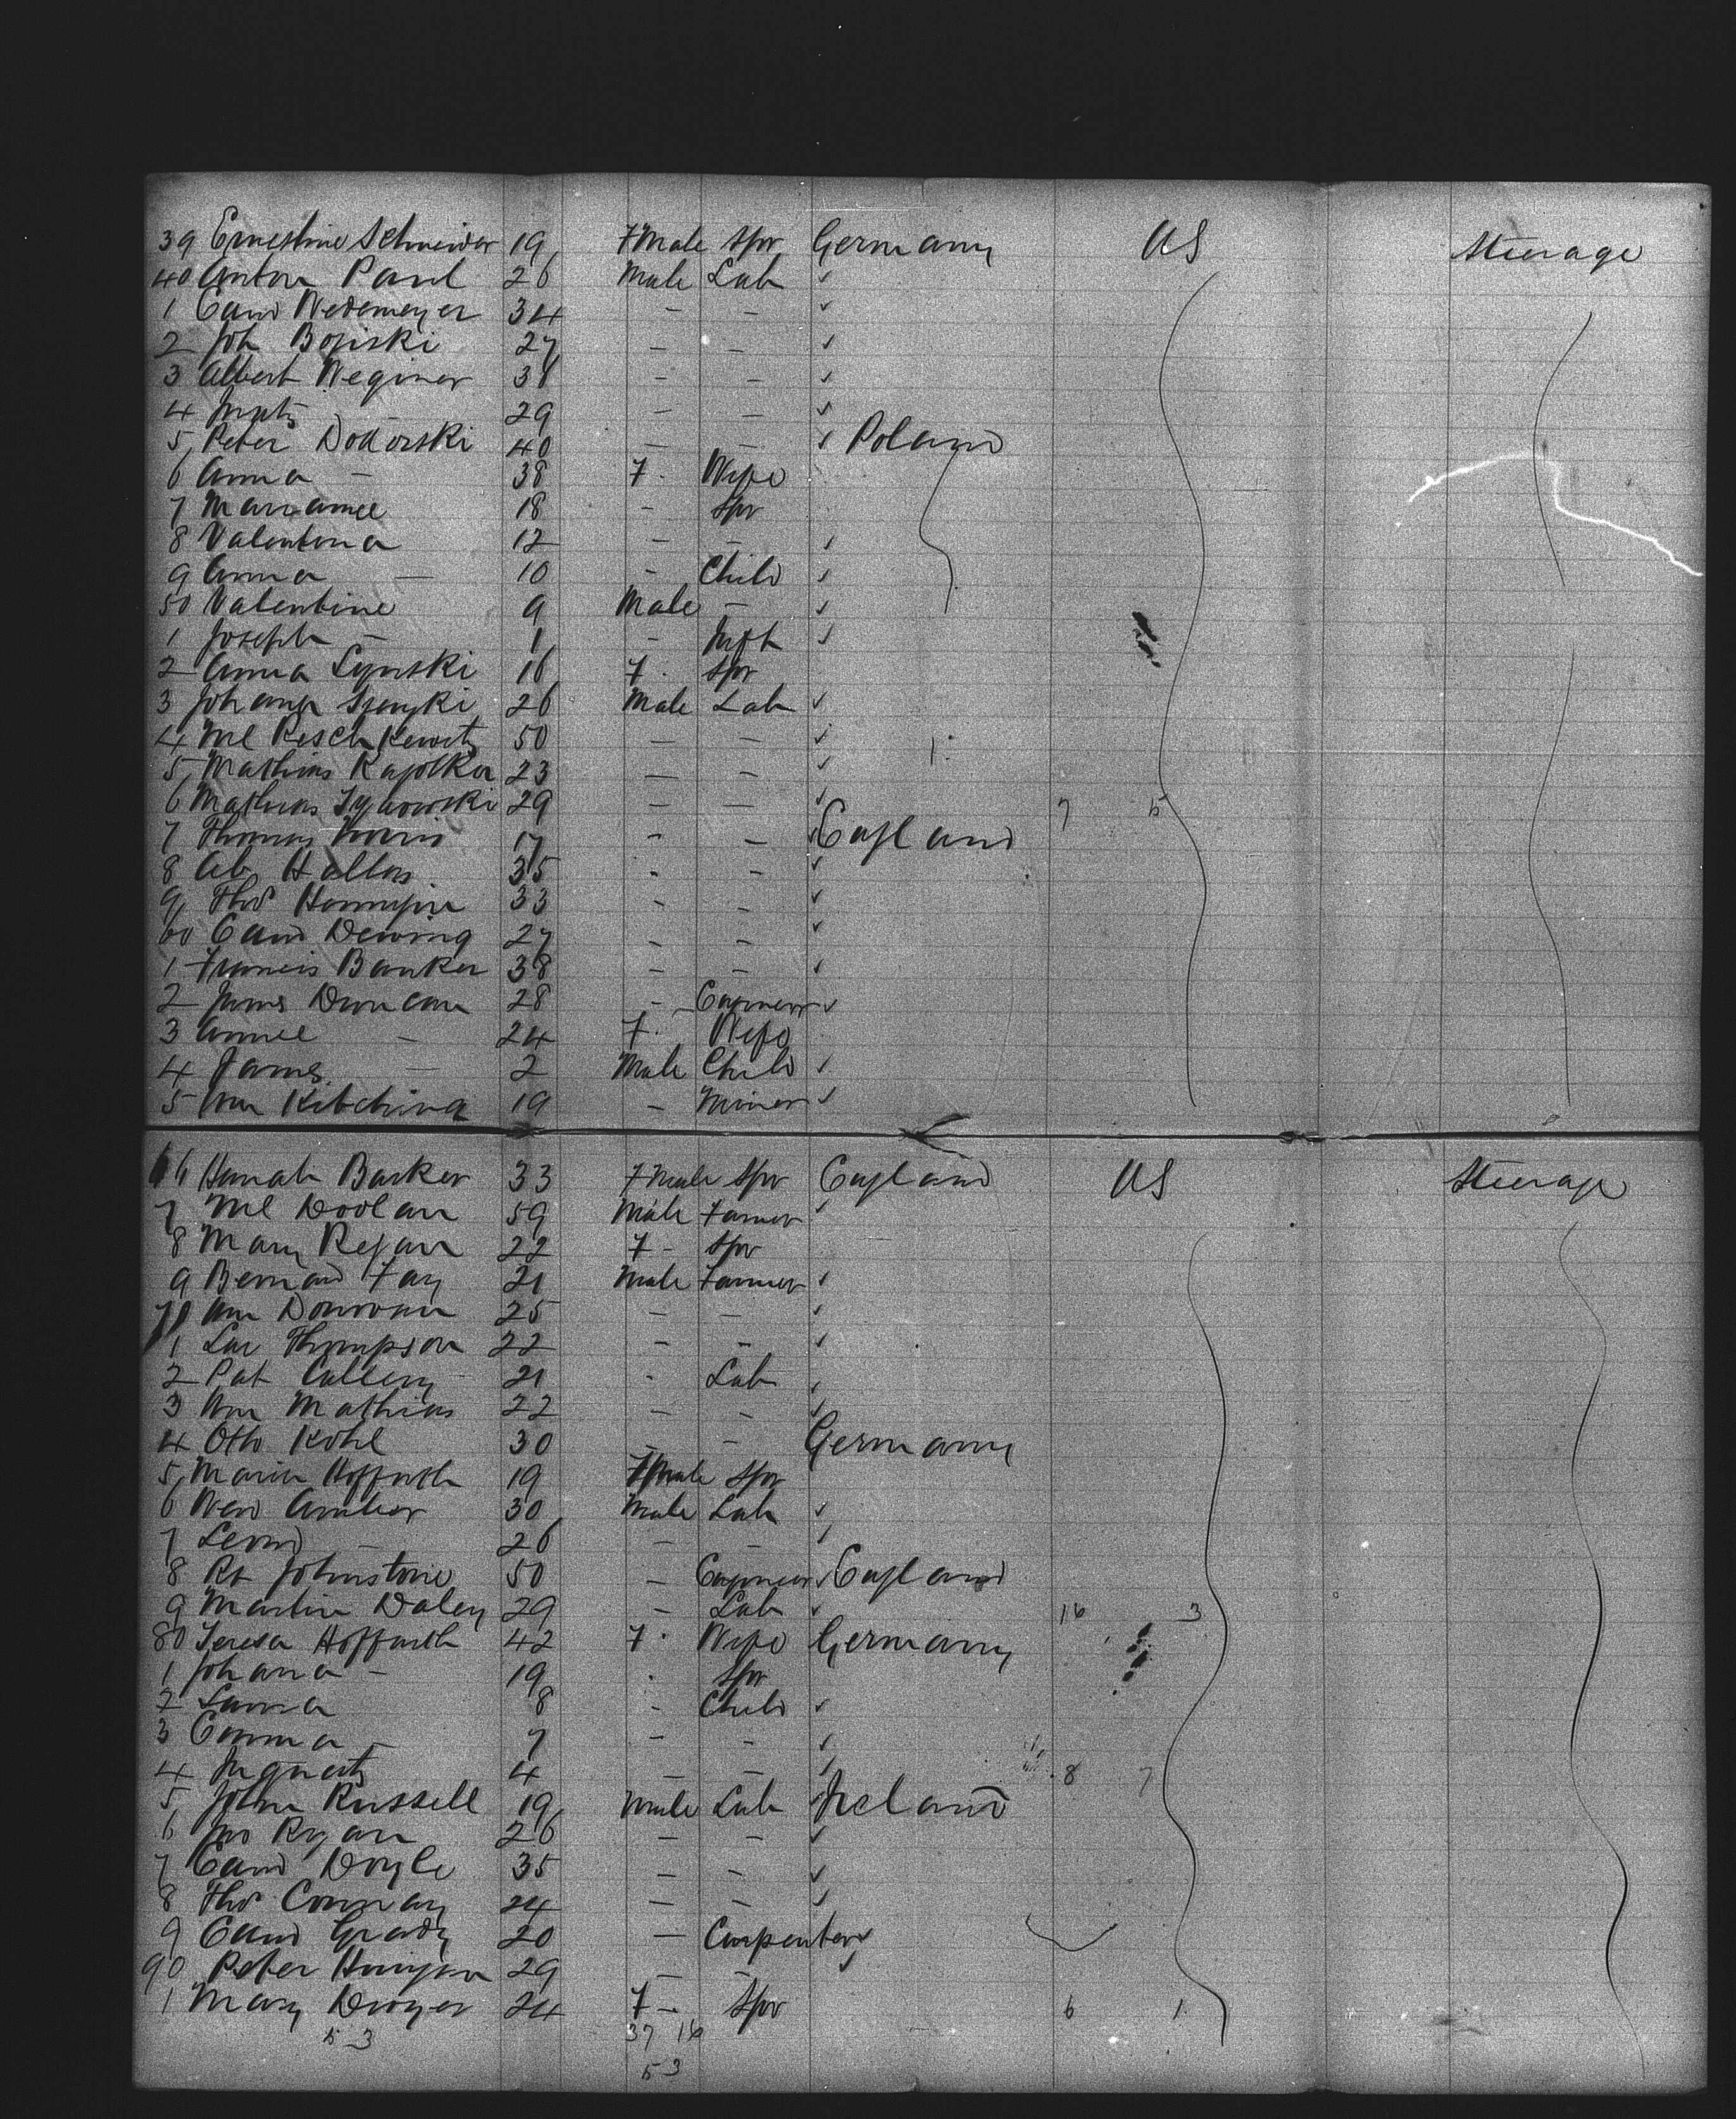 39 Ernestine Schneider 19 Fmale Spr Germany US Steerage
40 Anton Paul 26 Male Lab ✓
1 Edwd Wedemeyer 34 - - ✓
2 Joh Bojiski 27 - - ✓
3 Albert Weginer 38 - - ✓
4 29 - - ✓
5 Peter Dodorski 40 - - ✓ Poland
6 Anna - 38 F. Wife
7 Marianne 18 - Spr
8 Valentena 12 - - ✓
9 Anna - 10 - Child ✓
50 Valentine 9 Male - ✓
1 Joseph - 1 - Inft ✓
2 Anna Lynski 16 F. Spr
3 Johann 26 Male Lab ✓
4 Ml 50 - - ✓
5 Mathias Kapolka 23 - - ✓
6 Mathias 29 - - ✓ 7 5
7 Thomas 17 - - ✓ England
8 Ab Hallas 35 - - ✓
9 Thos 33 - - ✓
60 Edwd Dewing 27 - - ✓
1 Francis Banker 38 - - ✓
2 James Duncan 28 - Engineer ✓
3 Annie - 24 F. Wife
4 James - 2 Male Child ✓
5 Wm Kitching 19 - Miner ✓
66 Hanah Barker 33 Fmale Spr England US Steerage
7 Ml Doolan 59 Male Farmer ✓
8 Mary Regan 22 F - Spr
9 Bernard Fay 21 Male Farmer ✓
70 Wm Donovan 25 - - ✓
1 Thompson 22 - - ✓
2 Pat Cullery 21 - Lab ✓
3 Wm Mathias 22 - - ✓
4 Otto Kohl 30 - - Germany
5 Maria Hoffarth 19 Fmale Spr
6 30 Male Lab ✓
7 - 26 - - ✓
8 Rt Johnstone 50 - Engineer ✓ England
9 Martin Daley 29 - Lab ✓ 16 3
80 Teresa Hoffarth 42 F. Wife Germany
1 Johana - 19 - Spr
2 8 - Child ✓
3 Emma - 7 - - ✓
4 Ignatz 4 - - ✓ 8 7
5 John Russell 19 Male Lab ✓ Ireland
6 Jno Ryan 26 - - ✓
7 Edwd Doyle 35 - - ✓
8 Thos Conway 24 - - ✓
9 Edwd Grady 20 - Carpenter ✓
90 Peter 29 - - ✓
1 Mary Dwyer 24 F - Spr 6 1
53 37 16
53